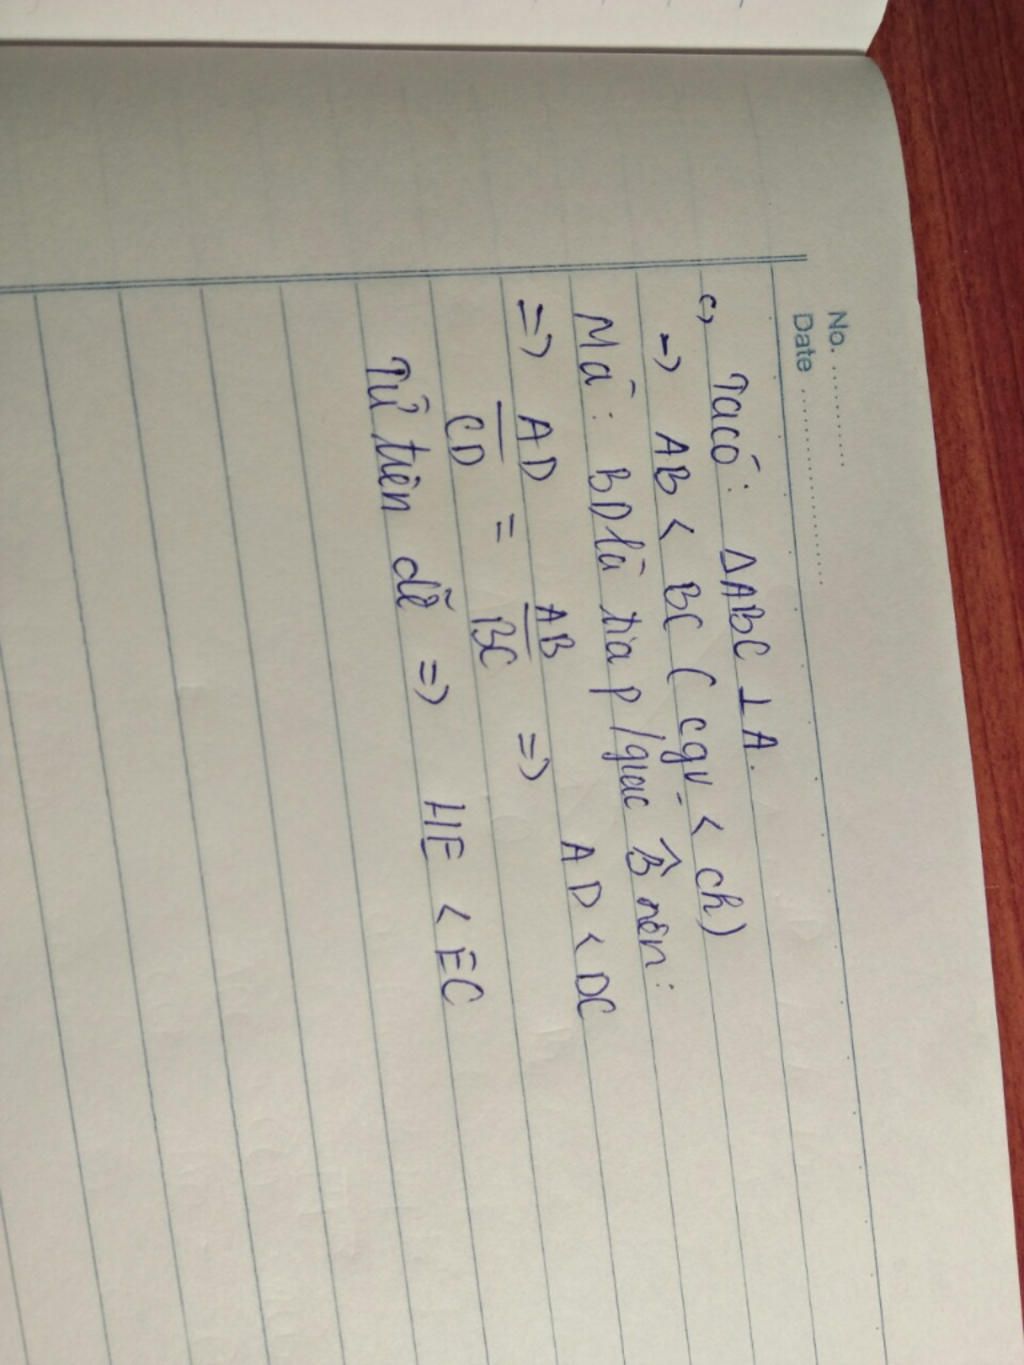 No. ............
Date ....................
c, Ta có: ΔABC ⊥ A.
→ AB < BC ( cgv < ch)
Mà: BD là tia p/giác B̂ nên:
=> AD/CD = AB/BC => AD < DC
Từ trên dễ => HE < EC